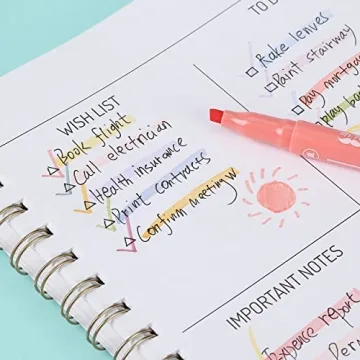 WISH LIST
Book flight
Call electrician
Health insurance
Print contracts
Confirm meeting w
TO D
Rake leaves
Paint stairway
Pay mortgag
play ba
IMPORTANT NOTES
Expense report
Per